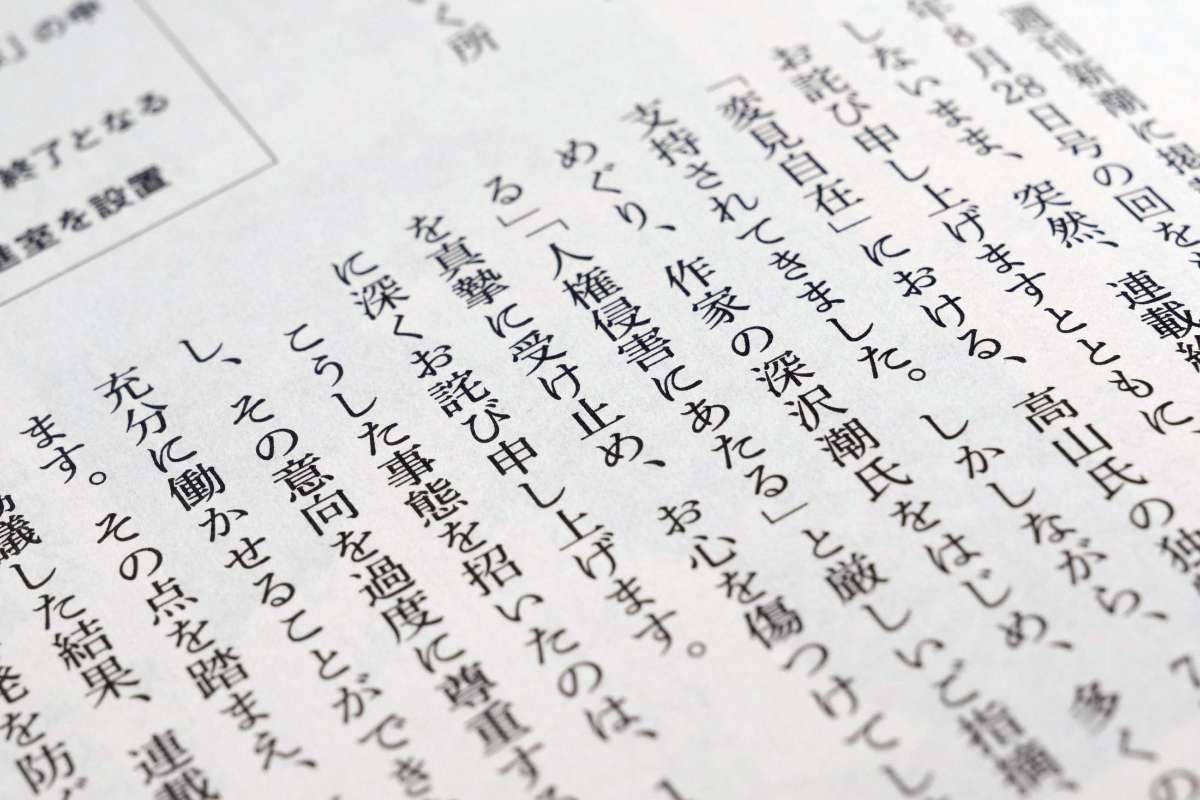 週刊新潮に掲
年8月28日号の回を
しないまま、突然、連載終
お詫び申し上げますとともに、
「変見自在」における、高山氏の独
支持されてきました。しかしながら、7
めぐり、作家の深沢潮氏をはじめ、多くの
る」「人権侵害にあたる」と厳しいご指摘、
を真摯に受け止め、お心を傷つけてし
に深くお詫び申し上げます。
こうした事態を招いたのは、
し、その意向を過度に尊重する
充分に働かせることができ
ます。その点を踏まえ、
協議した結果、連載
発を防
く所
」の中
終了となる
室を設置